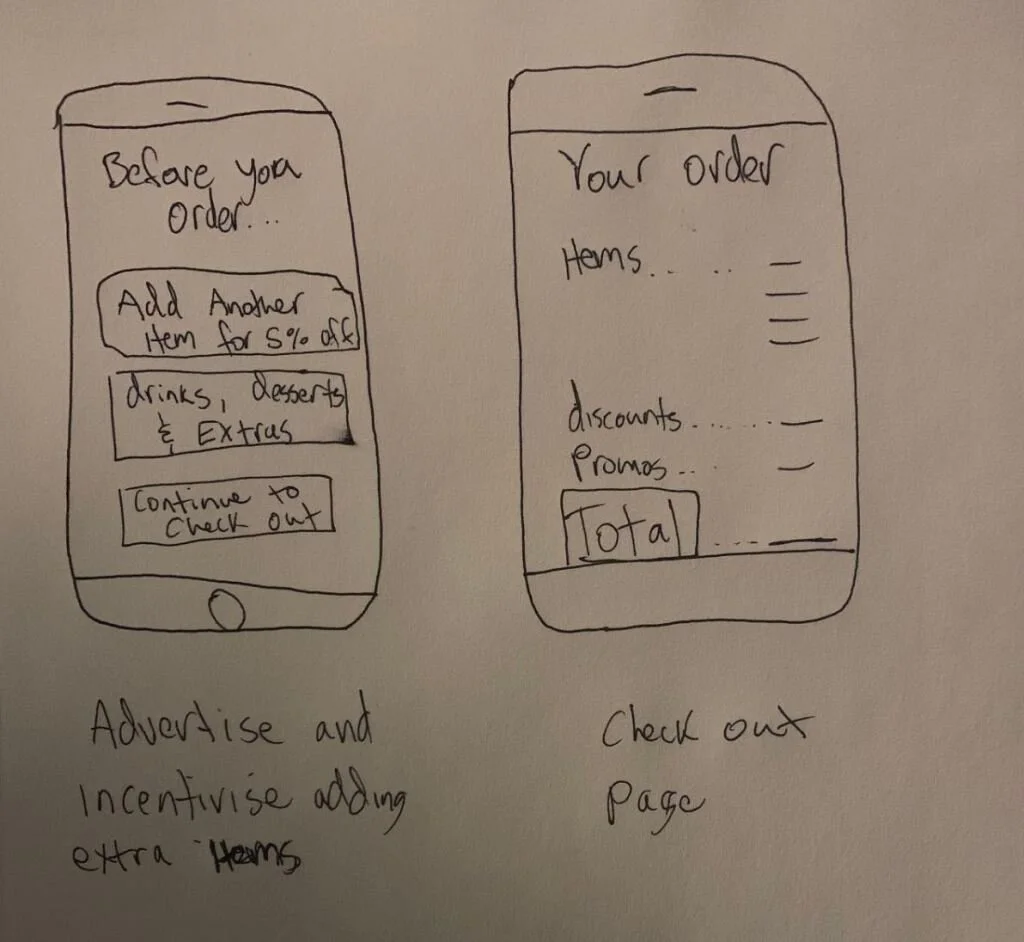 Before you
Order...
Add Another
Item for 5% off
drinks, desserts
& Extras
Continue to
Check out
Advertise and
incentivise adding
extra Items
Your order
Items.. ..
discounts.......
Promos...
Total ....
Check out
page